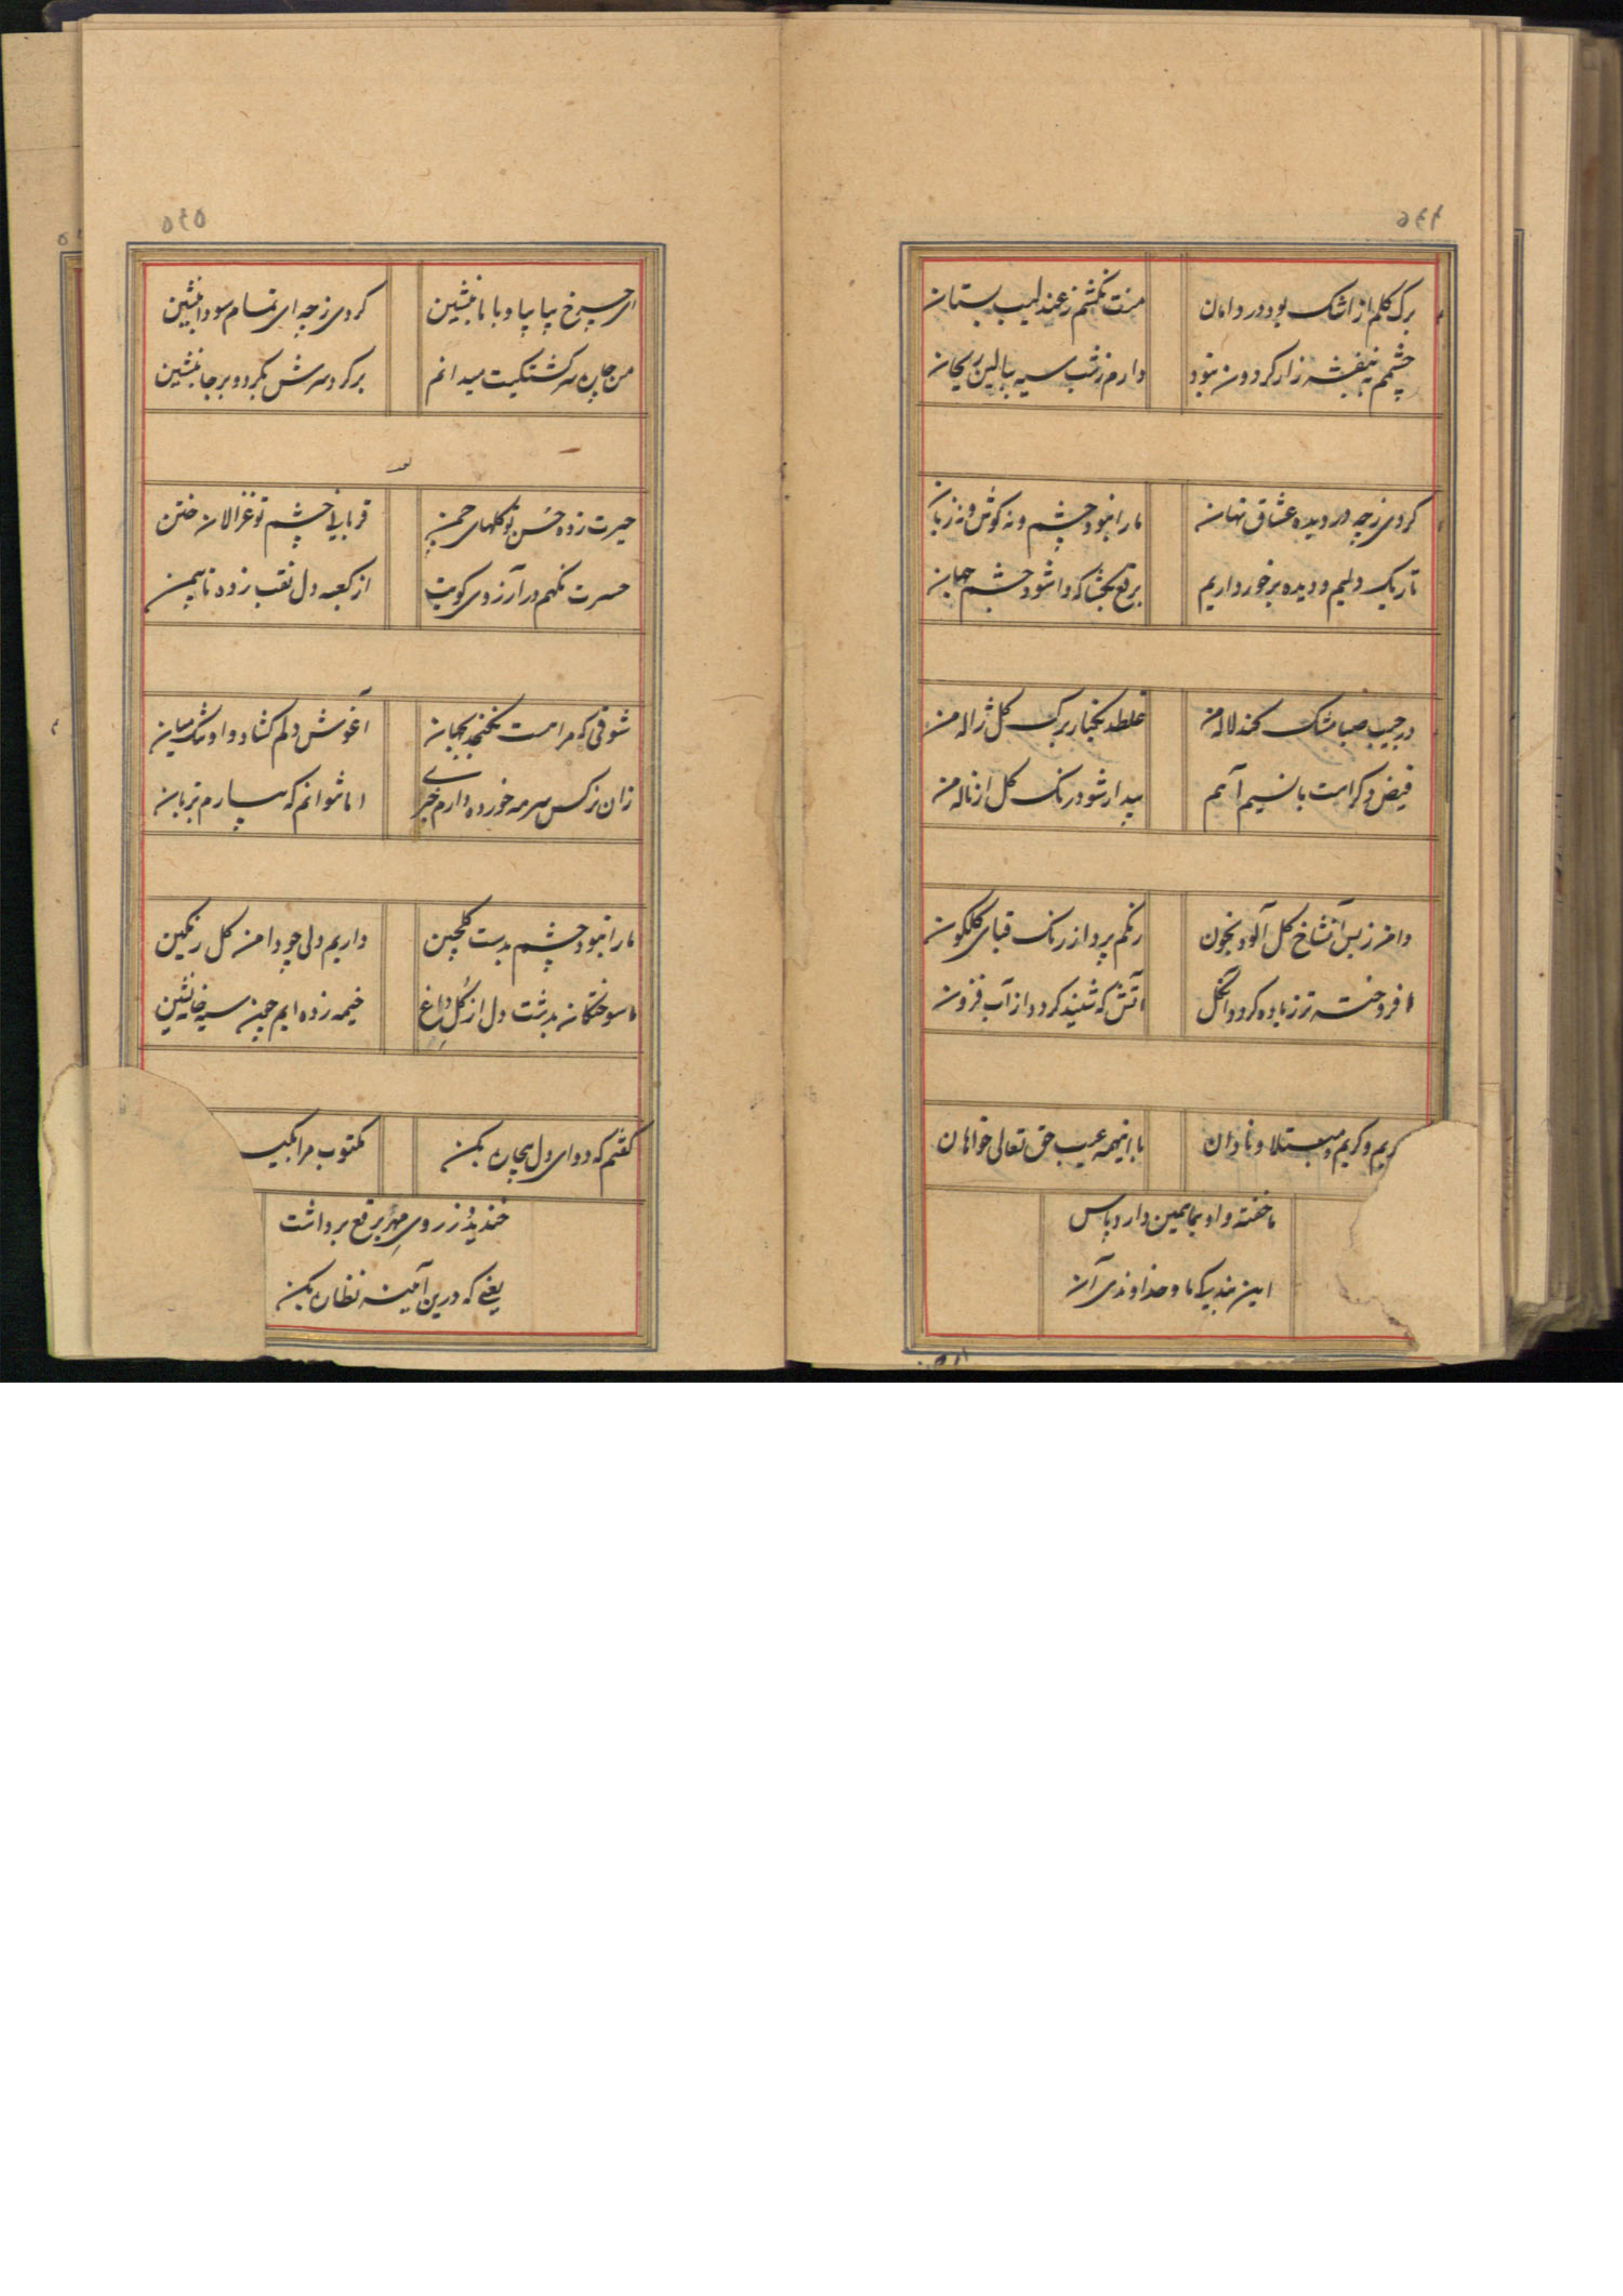 برک کلم از اشک بود در دامان
منت نکشم ز عندلیب بستان
چشمم بنفشه زار کردون نبود
دارم ز شب سیه ببالین ریحان
کردی ز چه در دیده عشاق نهان
ما را نبود چشم و نه کوش و نه زبان
تاریک دلیم و دیده برخورداریم
برقع بکشا که وا شود چشم جهان
در جیب صبا مشک کند لاله من
غلطد بکنار برک کل ژاله من
فیض دکر است با نسیم آهم
بیدار شود رنک کل از ناله من
دامن ز بس آنشاخ کل آلود بخون
رنکم پرواز رنک قبای کلکون
افروخته تر ز باده کردد آنکل
آتش که شنید کردد از آب فزون
کریم و کریم و مبتلا و نادان
با اینهمه عیب حق تعالی خواهان
ما خفته و او بما همین دارد پاس
این بندیکی ما و خداوندی آن
۵۴۵
ای چرخ بیا بیا و با ما بنشین
کردی ز چه ای تمام سودا بنشین
من چاره سرکشتکیت میدانم
برکرد سرش بکرد و برجا بنشین
حیرت زده حسن تو کلهای چمن
قربانی چشم تو غزالان ختن
حسرت نکهم در آرزوی کویت
از کعبه دل نقب زده تا بیمن
شوقی که مراست نکنجد بجهان
آغوش دلم کشاد و او تنک میان
زان نرکس سرمه خورده دارم خبری
اما نتوانم که سپارم بزبان
ما را نبود چشم بدست کلچین
داریم دلی چو دامن کل رنکین
ما سوختکان بدشت دل از کل داغ
خیمه زده ایم چون سیه خانه نشین
کفتم که دوای دل بیچاره بکن
مکتوب مرا بکیر
خندید و ز روی مهر برقع برداشت
یعنی که درین آینه نظاره بکن